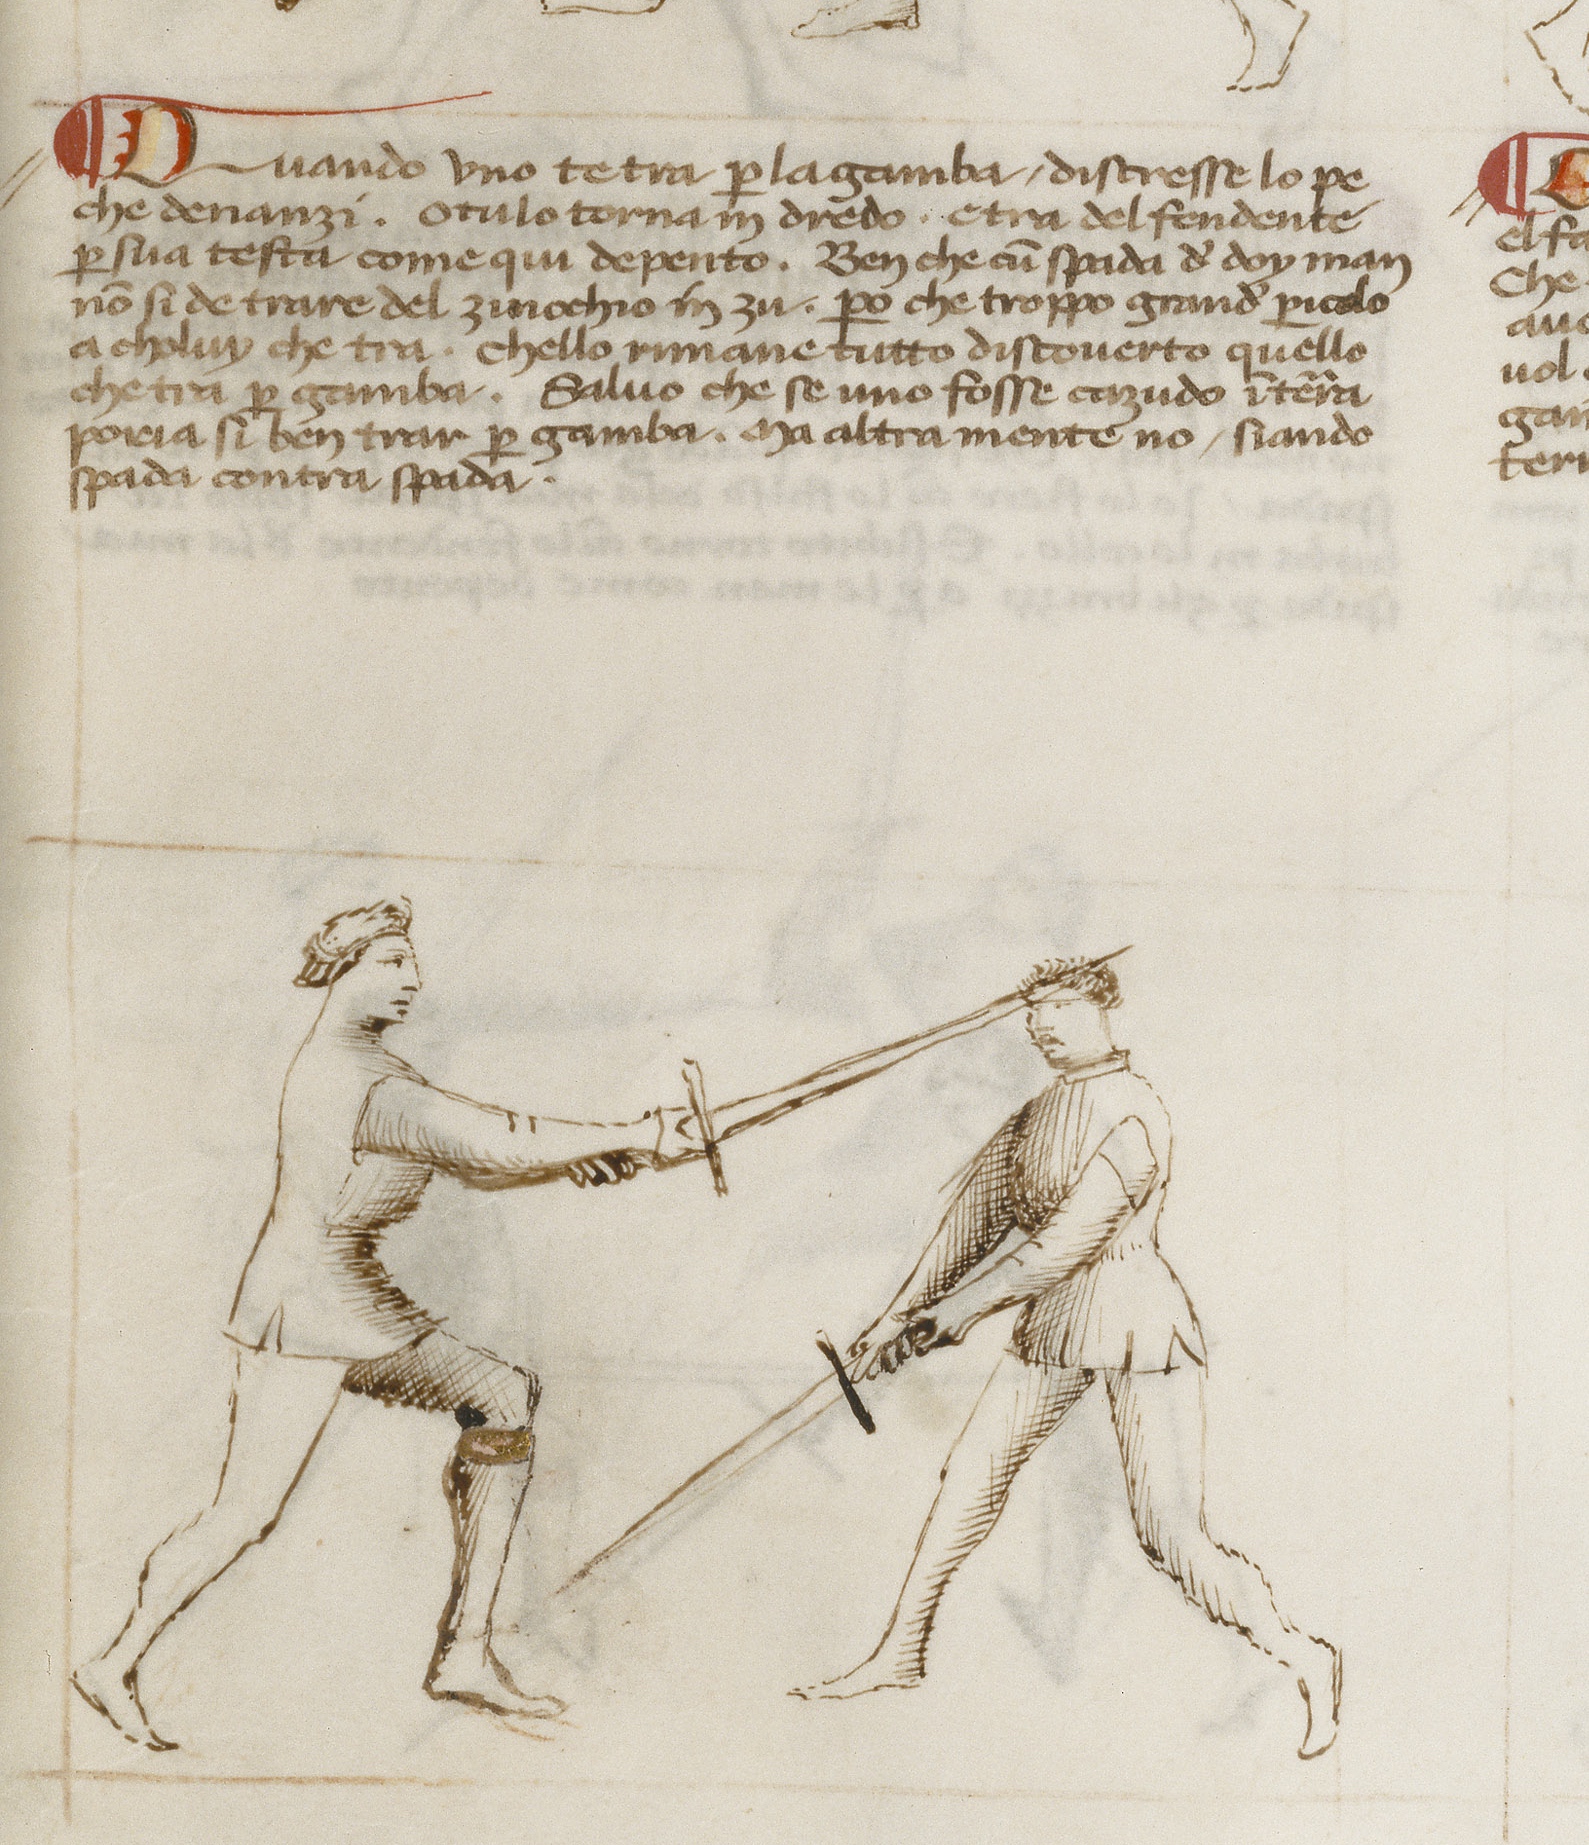 Quando uno te tra ꝑ la gamba / discresse lo pe
che denanzi. O tu lo torna in drēdo. E tra del fendente
ꝑ sua testa come qui depento. Ben che cū spada d̕ doy man
nō si de trare del zinochio in zu. ꝑo che troppo grand̕ ꝑicolo
a choluy che tra. Chello rimane tutto discoverto quello
che tra ꝑ gamba. Salvo che se uno fosse cazudo ī terra
poria si ben trar ꝑ gamba. Ma altra mente no / siando
spada contra spada.
el fa
Che
uol
gam